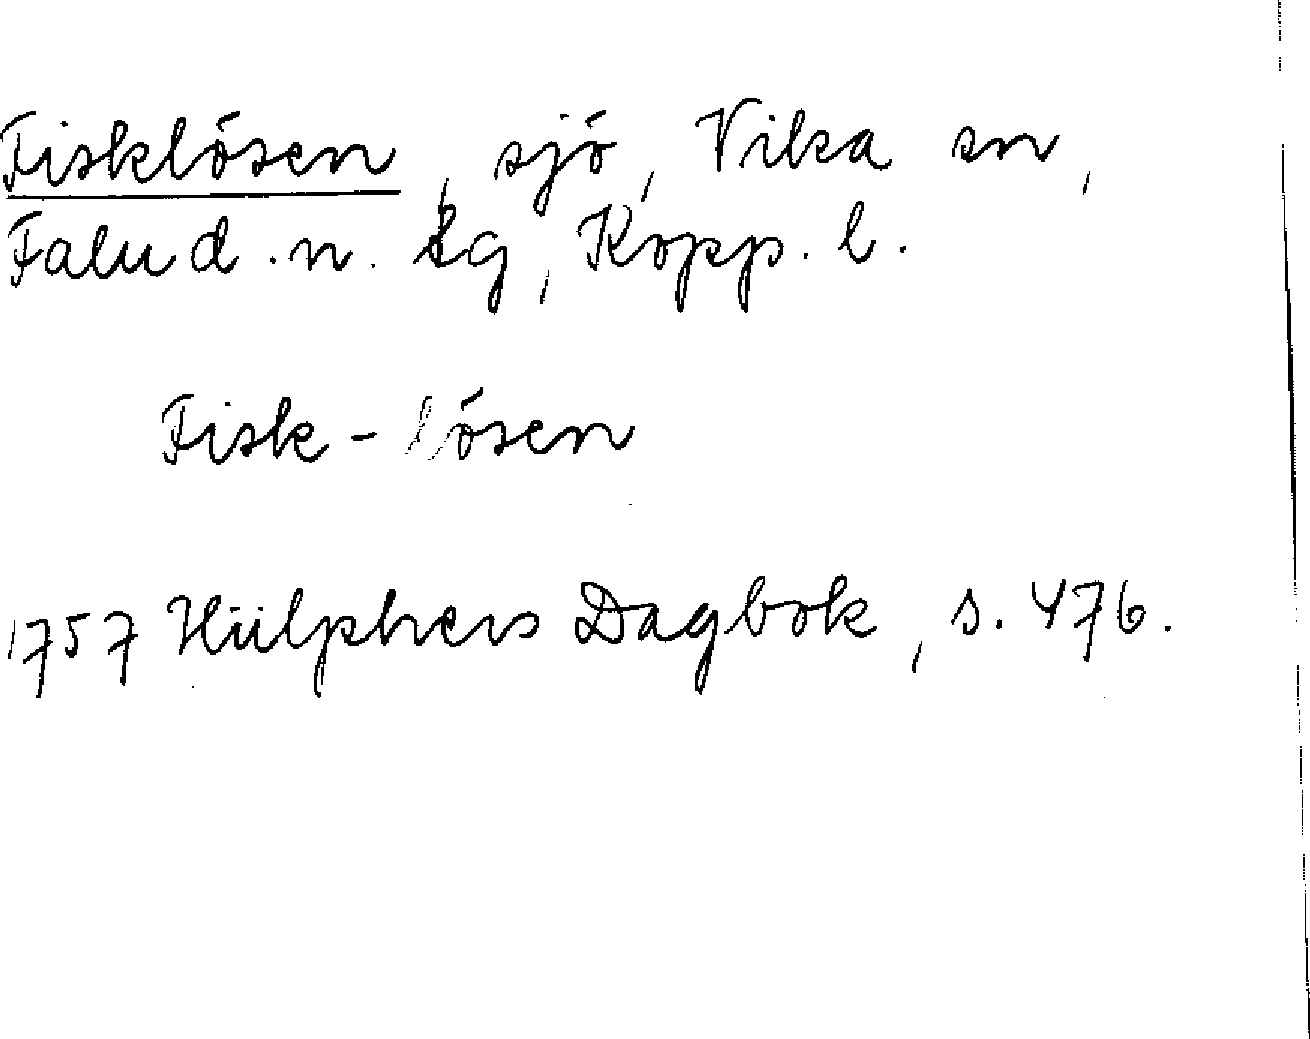 Fisklösen, sjö, Vika sn,
Falu d. n. tg, Kopp. l.
Fisk-lösen
1757 Hülphers Dagbok, s. 476.